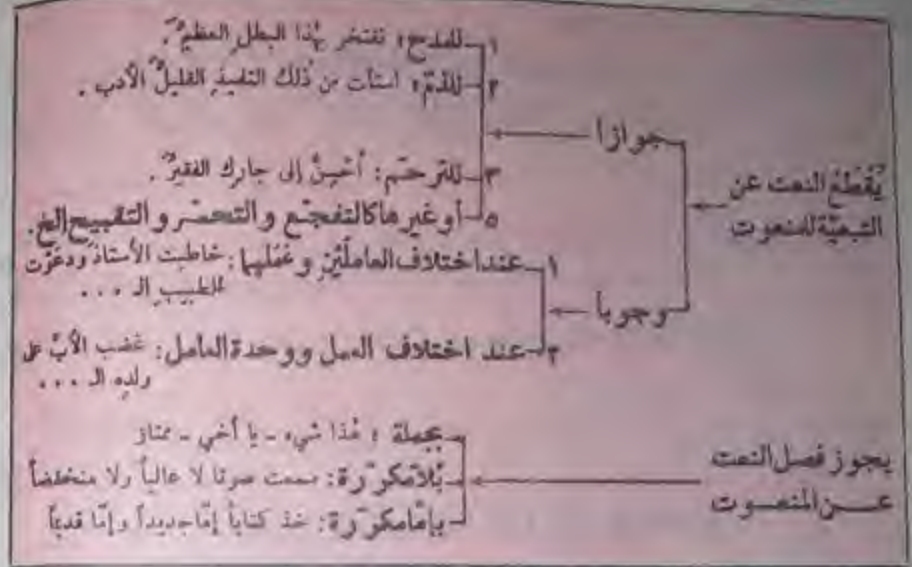 يُقطَعُ النعت عن
التبعيّة للمنعوت
جوازا
١ـ للمدح: نفتخر بهذا البطل العظيمُ.
٢ـ للذمّ: استأت من ذلك التلميذِ القليلُ الأدب.
٣ـ للترحّم: أحسِنْ إلى جارك الفقيرُ.
٥ـ أو غيرها كالتفجّع و التحسّر و التقبيح إلخ.
وجوبا
١ـ عند اختلاف العاملَيْنِ و عملهما: خاطبت الأستاذَ ودعوْت
للطبيبِ الـ ...
٢ـ عند اختلاف العمل ووحدة العامل: غضب الأبُ على
ولدِه الـ ...
يجوز فصل النعت
عن المنعوت
بجملة: هٰذا شيء ـ يا أخي ـ ممتاز
بلا مكرّرة: سمعت صوتا لا عالياً ولا منخفضاً
بإمّا مكرّرة: خذ كتاباً إمّا جديداً وإمّا قديماً